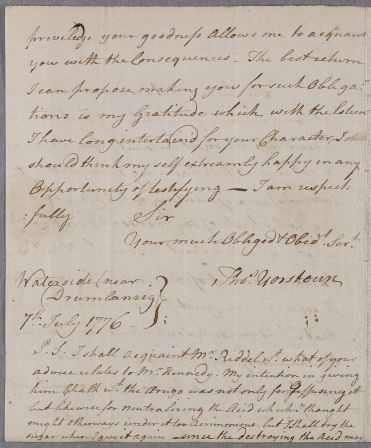 priviledge your goodness Allows me to acquaint
you with the Consequences - The best return
I can propose making you for such Obliga-
tions is my Gratitude which, with the Esteem
I have long intertaind for your Character, I
should think my self extreamly happy in any
Opportunity of testifying — I am respect:
:fully Sir
Your much Obliged & Obedt. Sert.
Thos. Yorstoun
Waterside (near
Drumlanrig)
7th. July 1776 -
P.S: I shall acquaint Mr. Riddel wt. what of your
advice relates to Mr. Kennedy. My intention in giving
him Chalk wt. the was not only for
but likewise for Neutralizing the Acid which I thought
might otherways render it too acrimonious. but I shall try the
sugar when I give it again - since the destroying the Acid may